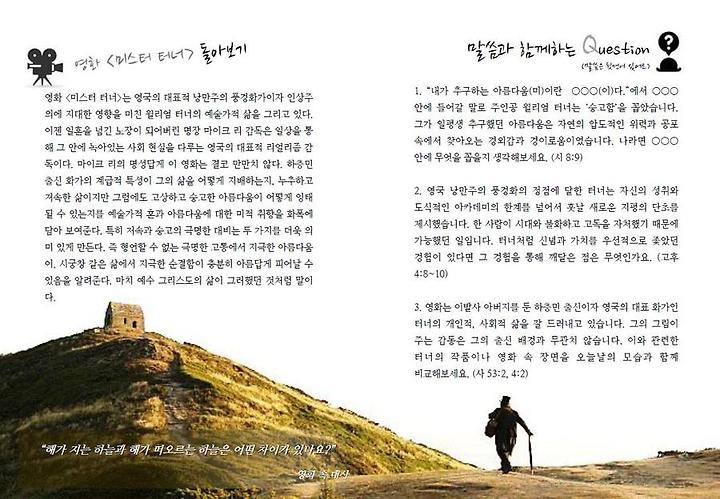 영화 <미스터 터너> 돌아보기
영화 <미스터 터너>는 영국의 대표적 낭만주의 풍경화가이자 인상주
의에 지대한 영향을 미친 윌리엄 터너의 예술가적 삶을 그리고 있다.
이젠 일흔을 넘긴 노장이 되어버린 명장 마이크 리 감독은 일상을 통
해 그 안에 녹아있는 사회 현실을 다루는 영국의 대표적 리얼리즘 감
독이다. 마이크 리의 명성답게 이 영화는 결코 만만치 않다. 하층민
출신 화가의 계급적 특성이 그의 삶을 어떻게 지배하는지, 누추하고
저속한 삶이지만 그럼에도 고상하고 숭고한 아름다움이 어떻게 잉태
될 수 있는지를 예술가적 혼과 아름다움에 대한 미적 취향을 화폭에
담아 보여준다. 특히 저속과 숭고의 극명한 대비는 두 가지를 더욱 의
미 있게 만든다. 즉 형언할 수 없는 극명한 고통에서 지극한 아름다움
이, 시궁창 같은 삶에서 지극한 순결함이 충분히 아름답게 피어날 수
있음을 알려준다. 마치 예수 그리스도의 삶이 그러했던 것처럼 말이
다.
“해가 지는 하늘과 해가 떠오르는 하늘은 어떤 차이가 있나요?”
영화 속 대사
말씀과 함께하는 Question
(말씀은 뒷면에 있어요)
1. “내가 추구하는 아름다움(미)이란 ○○○(이)다.”에서 ○○○
안에 들어갈 말로 주인공 윌리엄 터너는 ‘숭고함’을 꼽았습니다.
그가 일평생 추구했던 아름다움은 자연의 압도적인 위력과 공포
속에서 찾아오는 경외감과 경이로움이었습니다. 나라면 ○○○
안에 무엇을 꼽을지 생각해보세요. (시 8:9)
2. 영국 낭만주의 풍경화의 정점에 달한 터너는 자신의 성취와
도식적인 아카데미의 한계를 넘어서 훗날 새로운 지평의 단초를
제시했습니다. 한 사람이 시대와 불화하고 고독을 자처했기 때문에
가능했던 일입니다. 터너처럼 신념과 가치를 우선적으로 좇았던
경험이 있다면 그 경험을 통해 깨달은 점은 무엇인가요. (고후
4:8~10)
3. 영화는 이발사 아버지를 둔 하층민 출신이자 영국의 대표 화가인
터너의 개인적, 사회적 삶을 잘 드러내고 있습니다. 그의 그림이
주는 감동은 그의 출신 배경과 무관치 않습니다. 이와 관련한
터너의 작품이나 영화 속 장면을 오늘날의 모습과 함께
비교해보세요. (사 53:2, 4:2)